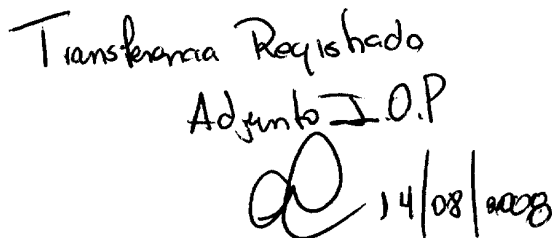 Transferencia Registrado
Adjunto I.O.P
14/08/2008